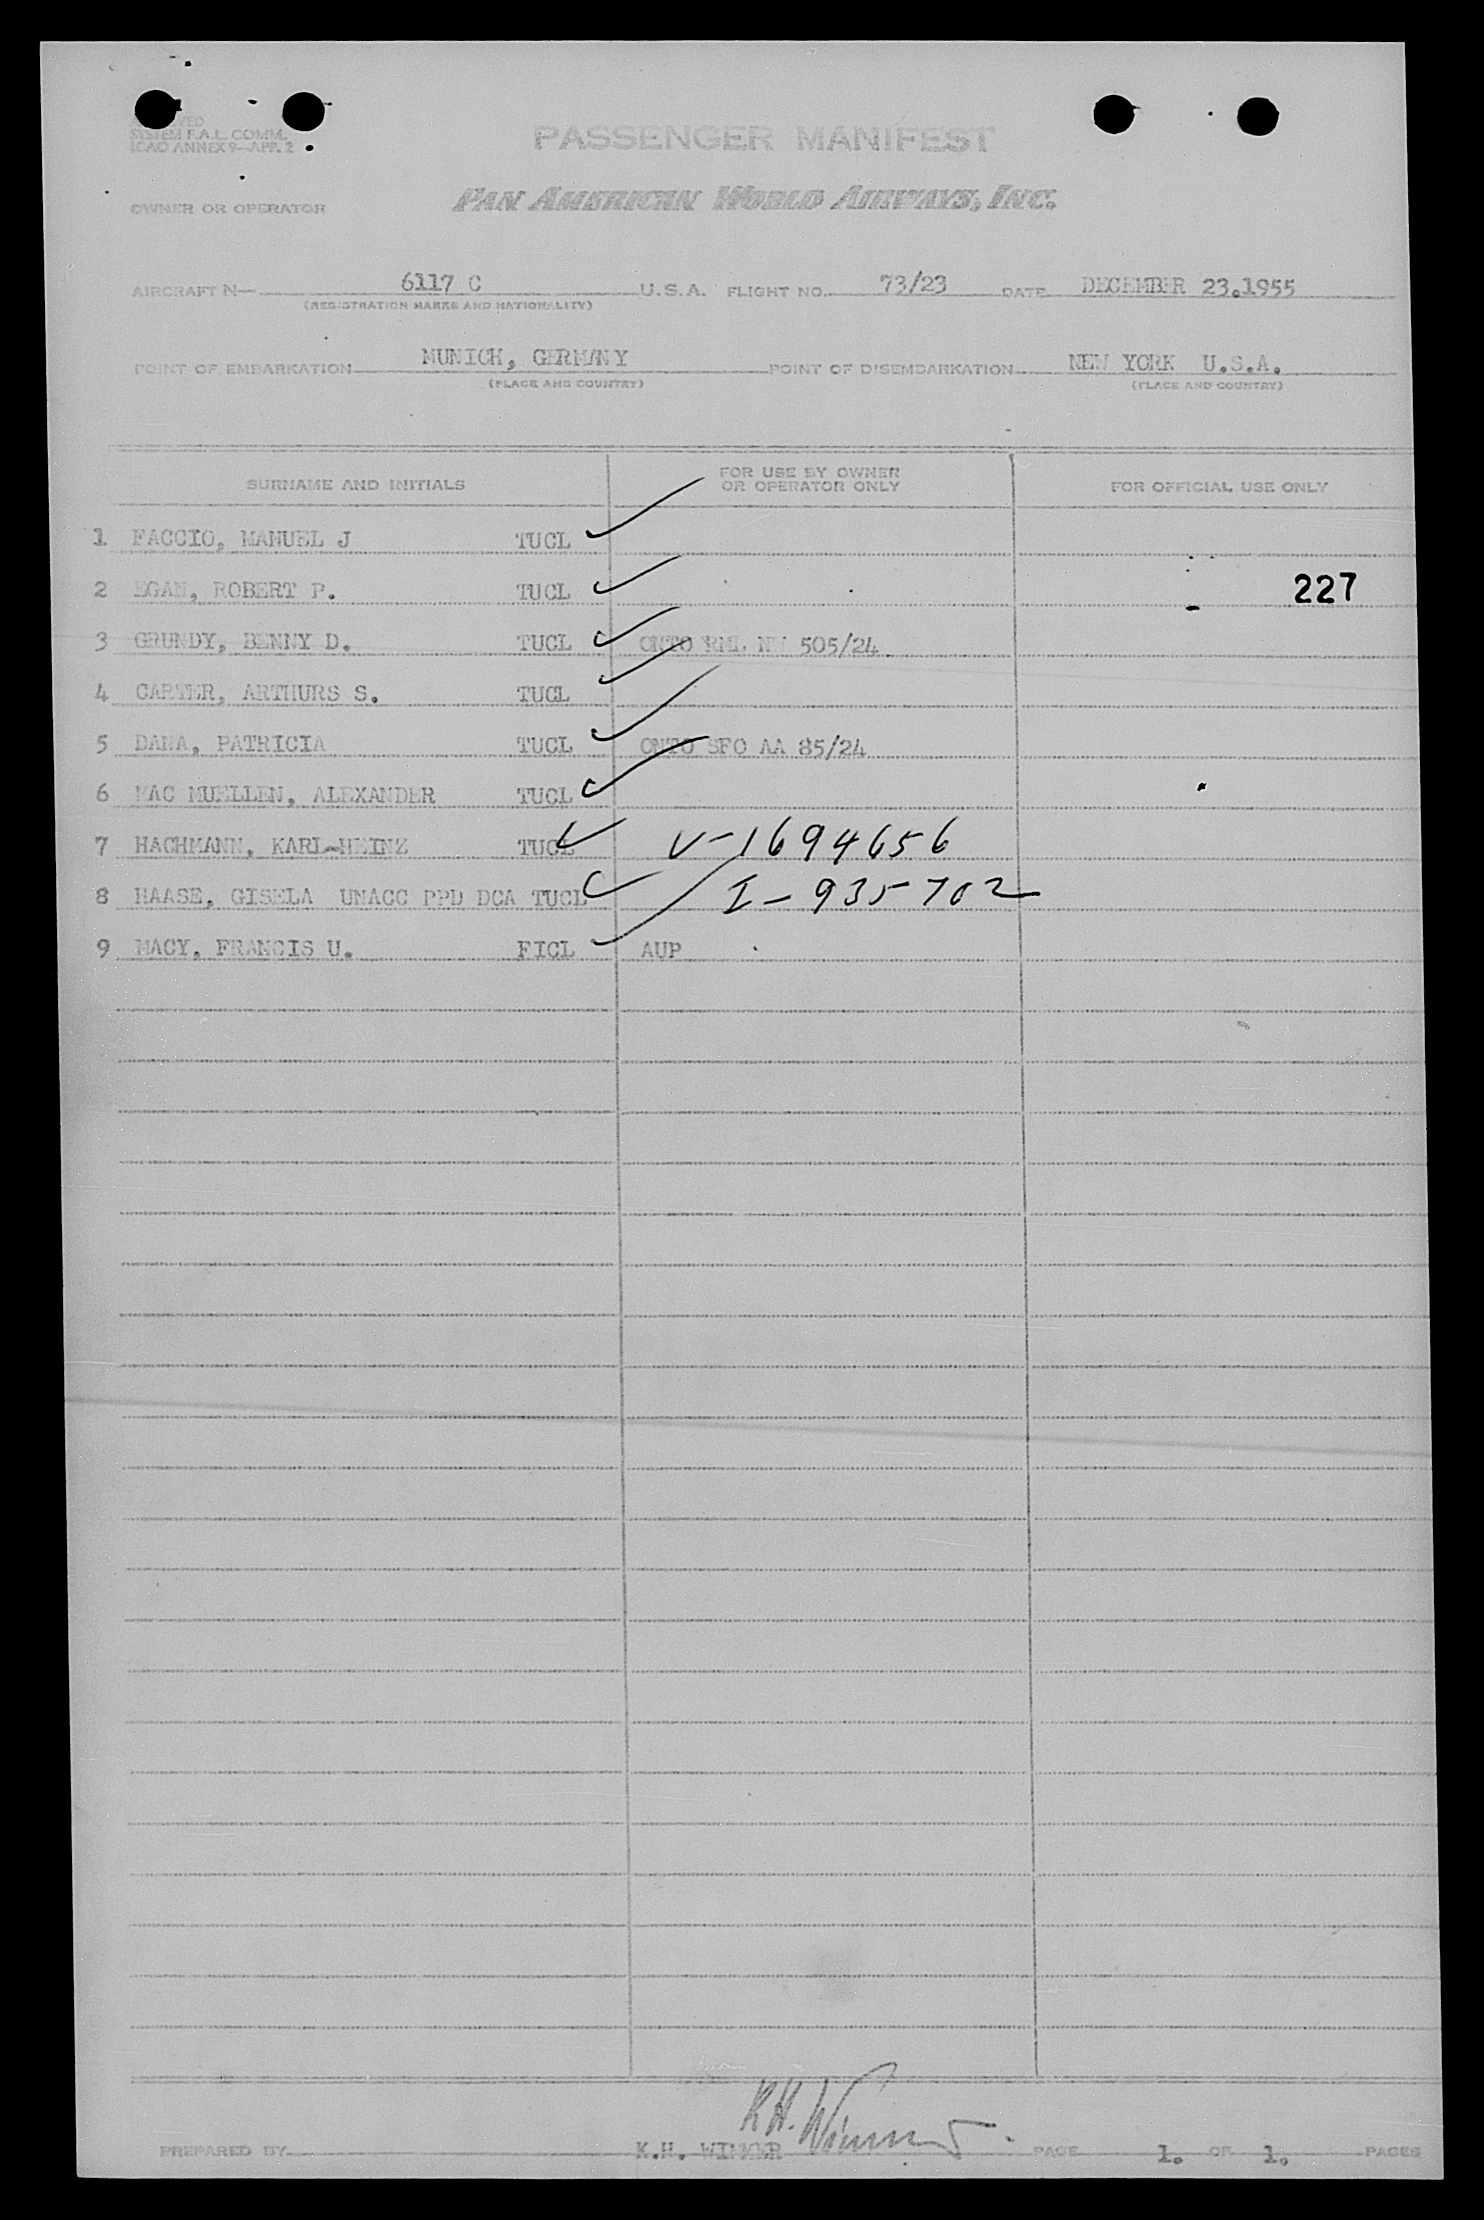 SYSTEM F.A.L. COMM.
ICAO ANNEX 9—APP. 2
PASSENGER MANIFEST
OWNER OR OPERATOR PAN AMERICAN WORLD AIRWAYS, INC.
AIRCRAFT N— 6117 C U.S.A. FLIGHT NO. 73/23 DATE DECEMBER 23.1955
(REGISTRATION MARKS AND NATIONALITY)
POINT OF EMBARKATION MUNICH, GERMANY POINT OF DISEMBARKATION NEW YORK U.S.A.
(PLACE AND COUNTRY) (PLACE AND COUNTRY)
SURNAME AND INITIALS FOR USE BY OWNER OR OPERATOR ONLY FOR OFFICIAL USE ONLY
1 FACCIO, MANUEL J TUCL
2 EGAN, ROBERT P. TUCL 227
3 GRUNDY, BENNY D. TUCL ONTO 505/24
4 CARTER, ARTHURS S. TUCL
5 DANA, PATRICIA TUCL ONTO SFO AA 85/24
6 MAC MUELLEN, ALEXANDER TUCL
7 HACHMANN, KARL-HEINZ TUCL V-1694656
8 HAASE, GISELA UNACC PPD DCA TUCL I-935702
9 MACY, FRANCIS U. FICL AUP
K.H. Wimmer
PREPARED BY K.H. WIMMER PAGE 1. OF 1. PAGES